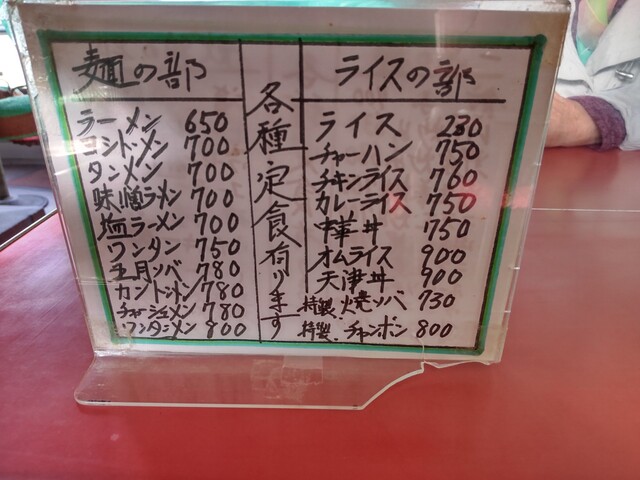 麺の部
ラーメン 650
モヤシメン 700
タンメン 700
味噌ラーメン 700
塩ラーメン 700
ワンタン 750
五目ソバ 780
カントンメン 780
チャーシューメン 780
ワンタンメン 800
各種定食有ります
ライスの部
ライス 230
チャーハン 750
チキンライス 760
カレーライス 750
中華丼 750
オムライス 900
天津丼 900
特製 焼ソバ 730
特製 チャンポン 800